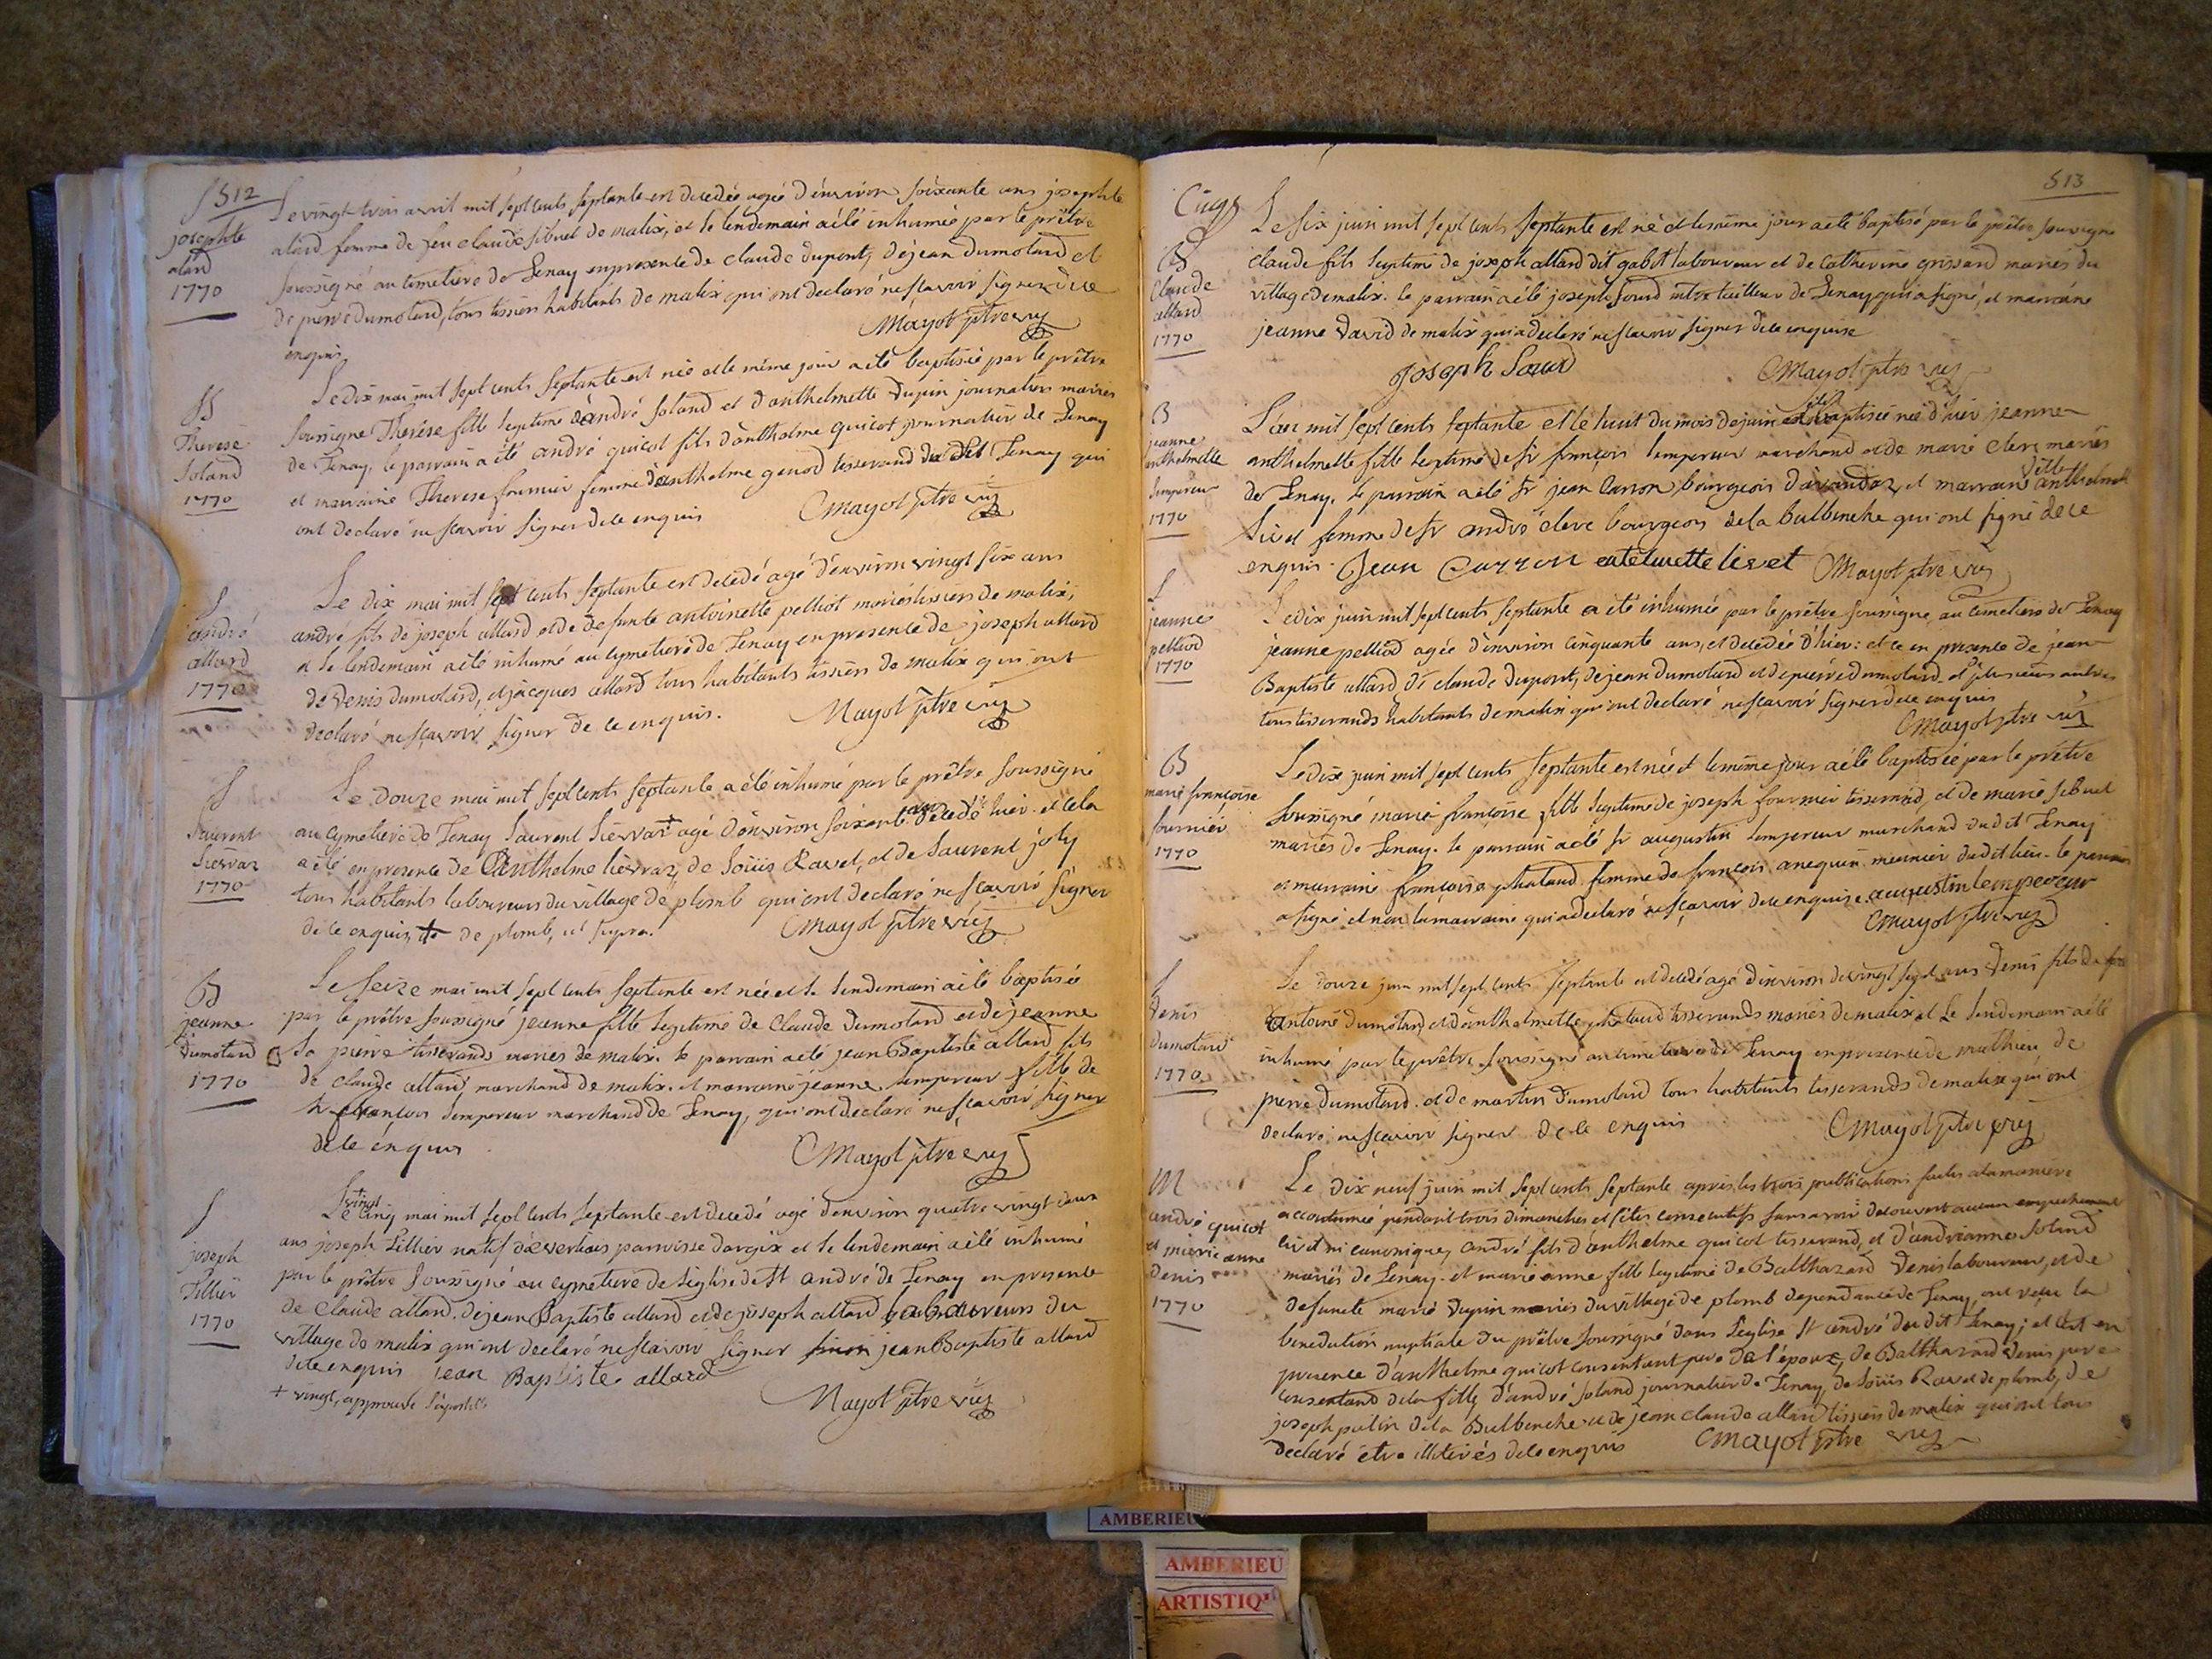 512
josephte
alard
1770
Le vingt trois avril mil sept cents septante est decedée agée d'environ soixante ans josephte
alard femme de feu claude sibuet de malix, et le lendemain a été inhumée par le prêtre
soussigné au cimetiere de Tenay en presence de claude dupont, de jean dumolard et
de pierre dumolard, tous tissiers habitants de malix qui ont declaré ne scavoir signer de ce
enquis
Mayot ptre vic
B
Therese
Joland
1770
Le dix mai mil sept cents septante est née et le même jour a été baptisée par le prêtre
soussigné Therése fille legitime d'andré Joland et d'anthelmette Dupin journaliers mariés
de Tenay. le parrain a été andré quicot fils d'anthelme quicot journalier de Tenay
et marraine Therese fournier femme d'anthelme genod tisserand du dit Tenay qui
ont declaré ne scavoir signer de ce enquis
Mayot ptre vic
S
andré
allard
1770
Le dix mai mil sept cents septante est decedé agé d'environ vingt six ans
andré fils de joseph allard et de defunte antoinette pelliot mariés tissiers de malix;
et le lendemain a été inhumé au cymetiere de Tenay en presence de joseph allard
de Denis dumolard, et jacques allard tous habitants tissiers de malix qui ont
declaré ne scavoir signer de ce enquis.
Mayot ptre vic
S
Laurent
Liervaz
1770
Le douze mai mil sept cents septante a été inhumé par le prêtre soussigné
au cymetiere de Tenay Laurent Liervaz + agé d'environ soixante ans decedé hier. et cela
a été en presence de Anthelme Liervaz, de Loüis Ravet, et de Laurent joly
tous habitants laboureurs du village de plomb qui ont declaré ne scavoir signer
de ce enquis + de plomb, ut supra.
Mayot ptre vic
B
jeanne
Dumolard
1770
Le seize mai mil sept cents septante est née et le lendemain a été baptisée
par le prêtre soussigné jeanne fille legitime de Claude Dumolard et de jeanne
La pierre tisserands mariés de malix. le parrain a été jean Baptiste allard fils
de claude allard marchand de malix. et marraine jeanne Lempereur fille de
Sr françois Lempereur marchand de Tenay, qui ont declaré ne scavoir signer
de ce enquis
Mayot ptre vic
S
joseph
Tillier
1770
Le + vingt cinq mai mil sept cents septante est decedé agé d'environ quatre vingt deux
ans joseph Tillier natif d'evertiaus parroisse d'argix et le lendemain a été inhumé
par le prêtre soussigné au cymetiere de l'eglise de St andré de Tenay en presence
de Claude allard, de jean Baptiste allard et de joseph allard laboureurs du
village de malix qui ont declaré ne scavoir signer sinon jean Baptiste allard
de ce enquis jean Baptiste allard
+ vingt, approuvé l'apostille
Mayot ptre vic
513
B
Claude
allard
1770
Le six juin mil sept cents septante est né et le même jour a été baptisé par le prêtre soussigné
claude fils legitime de joseph allard dit gabet laboureur et de Catherine grissard mariés du
village de malix. le parrain a été joseph sourd tailleur de Tenay qui a signé, et marraine
jeanne David de malix qui a declaré ne scavoir signer de ce enquise
Joseph Sourd
Mayot ptre vic
B
jeanne
anthelmette
Lempereur
1770
L'an mil sept cents septante et le huit du mois de juin a été baptisée née d'hier jeanne
anthelmette fille legitime de Sr françois Lempereur marchand et de marie clerc mariés
de Tenay. le parrain a été Sr jean Carron bourgeois d'arandaz, et marraine dlle anthelmette
Livet femme de Sr andré clerc bourgeois de la Balbenche qui ont signé de ce
enquis. Jean Carron entelmette livet
Mayot ptre vic
S
jeanne
pelliod
1770
Le dix juin mil sept cents septante a été inhumée par le prêtre soussigné au cimetiere de Tenay
jeanne pelliod agée d'environ cinquante ans, et decedée d'hier: et ce en presence de jean
Baptiste allard, de claude dupont, de jean dumolard et de pierre dumolard et plusieurs autres
tous tisserands habitants de malix qui ont declaré ne scavoir signer de ce enquis
Mayot ptre vic
B
marie françoise
fournier
1770
Le dix juin mil sept cents septante est née et le même jour a été baptisée par le prêtre
soussigné marie françoise fille legitime de joseph fournier tisserand, et de marie sibuet
mariés de Tenay. le parrain a été Sr augustin Lempereur marchand dudit Tenay
et marraine françoise phaland femme de françois anequin meunier dudit lieu. le parrain
a signé et non la marraine qui a declaré ne scavoir de ce enquise. augustin lempereur
Mayot ptre vic
S
Denis
Dumolard
1770
Le douze juin mil sept cents septante est decedé agé d'environ vingt sept ans Denis fils de feu
Antoine dumolard et d'anthelmette phaland tisserands mariés de malix et le lendemain a été
inhumé par le prêtre soussigné au cimetiere de Tenay en presence de mathieu de
pierre Dumolard. et de martin Dumolard tous habitants tisserands de malix qui ont
declaré ne scavoir signer de ce enquis
Mayot ptre vic
M
andré quicot
et marie anne
Denis
1770
Le dix neuf juin mil sept cents septante apres les trois publications faites a la maniere
accoutumée pendant trois dimanches et fêtes consecutifs sans avoir decouvert aucun empechement
civil ni canonique, andré fils d'anthelme quicot tisserand, et d'andrianne Joland
mariés de Tenay. et marie anne fille legitime de Balthazard Denis laboureur, et de
defuncte marie Dupin mariés du village de plomb dependance de Tenay ont reçu la
benediction nuptiale du prêtre soussigné dans l'eglise St andré du dit Tenay; et cest en
presence d'anthelme quicot consentant pere de l'epoux, de Balthazard Denis pere
consentant de la fille, d'andré Joland journalier de Tenay, de Loüis Ravet de plomb, de
joseph putin de la Balbenche et de jean claude allard tissier de malix qui ont tous
declaré être illiterés de ce enquis
Mayot ptre vic
AMBERIEU
AMBERIEU
ARTISTIQ